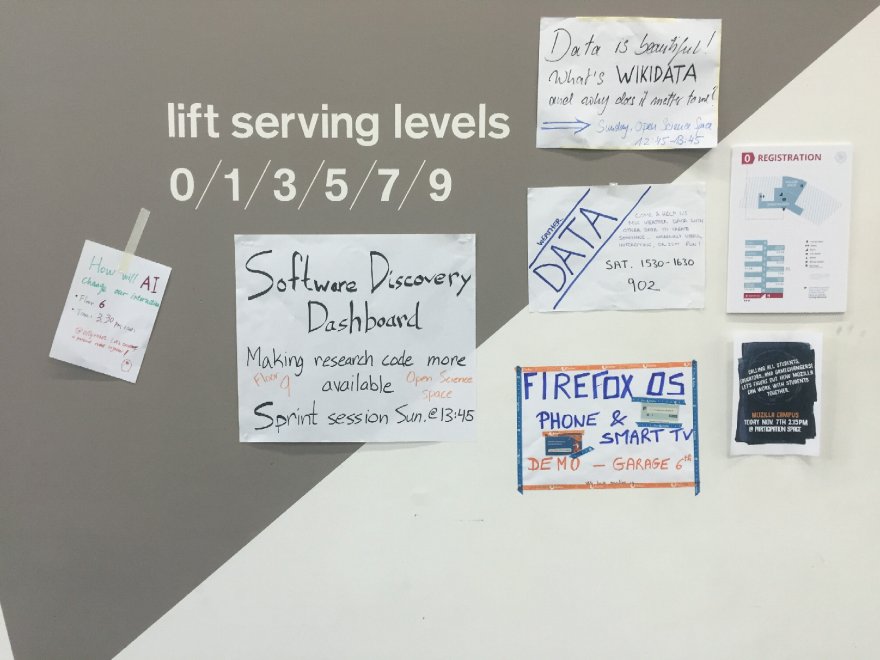 lift serving levels
0/1/3/5/7/9
How will AI
change our interactions
• Floor 6
• Time: 3.30 pm
Software Discovery
Dashboard
Making research code more
available
Floor
9
Open Science
space
Sprint session Sun. @ 13:45
Data is beautiful!
What's WIKIDATA
and why does it matter to me?
Sunday, Open Science Space
12:45-13:45
WEATHER
DATA
COME & HELP US
MIX WEATHER DATA WITH
OTHER DATA TO CREATE
SOMETHING
SAT. 1530-1630
902
FIREFOX OS
PHONE &
SMART TV
DEMO – GARAGE 6TH
0 REGISTRATION
CALLING ALL STUDENTS,
EDUCATORS, AND GAMECHANGERS!
LET'S FIGURE OUT HOW MOZILLA
CAN WORK WITH STUDENTS
TOGETHER.
MOZILLA CAMPUS
TODAY NOV. 7TH 2.15PM
@ PARTICIPATION SPACE